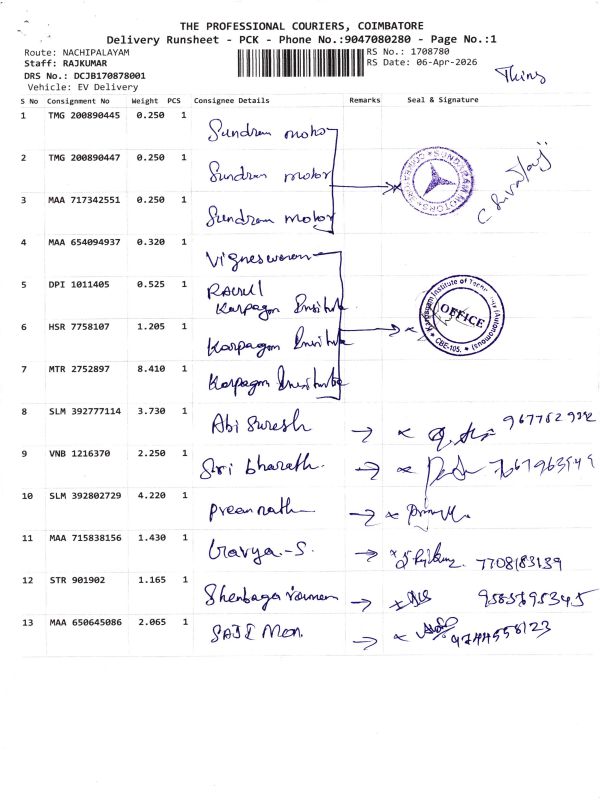 THE PROFESSIONAL COURIERS, COIMBATORE
Delivery Runsheet - PCK - Phone No.:9047080280 - Page No.:1
Route: NACHIPALAYAM RS No.: 1708780
Staff: RAJKUMAR RS Date: 06-Apr-2026
DRS No.: DCJB170878001
Vehicle: EV Delivery
S No Consignment No Weight PCS Consignee Details Remarks Seal & Signature
1 TMG 200890445 0.250 1 Sundram motor
2 TMG 200890447 0.250 1 Sundram motor
SUNDARAM MOTORS
3 MAA 717342551 0.250 1 Sundram motor
4 MAA 654094937 0.320 1 Vigneswaran
5 DPI 1011405 0.525 1 RAHUL
Karpagam Institute
Karpagam Institute of Technology (Autonomous)
OFFICE
CBE-105.
6 HSR 7758107 1.205 1 Karpagam Institute
7 MTR 2752897 8.410 1 Karpagam Institute
8 SLM 392777114 3.730 1 Abi Suresh
9 VNB 1216370 2.250 1 Sri bharath.
10 SLM 392802729 4.220 1
11 MAA 715838156 1.430 1 Gavya.-S. 7708183139
12 STR 901902 1.165 1
13 MAA 650645086 2.065 1 SAJI Mon. 9744558123